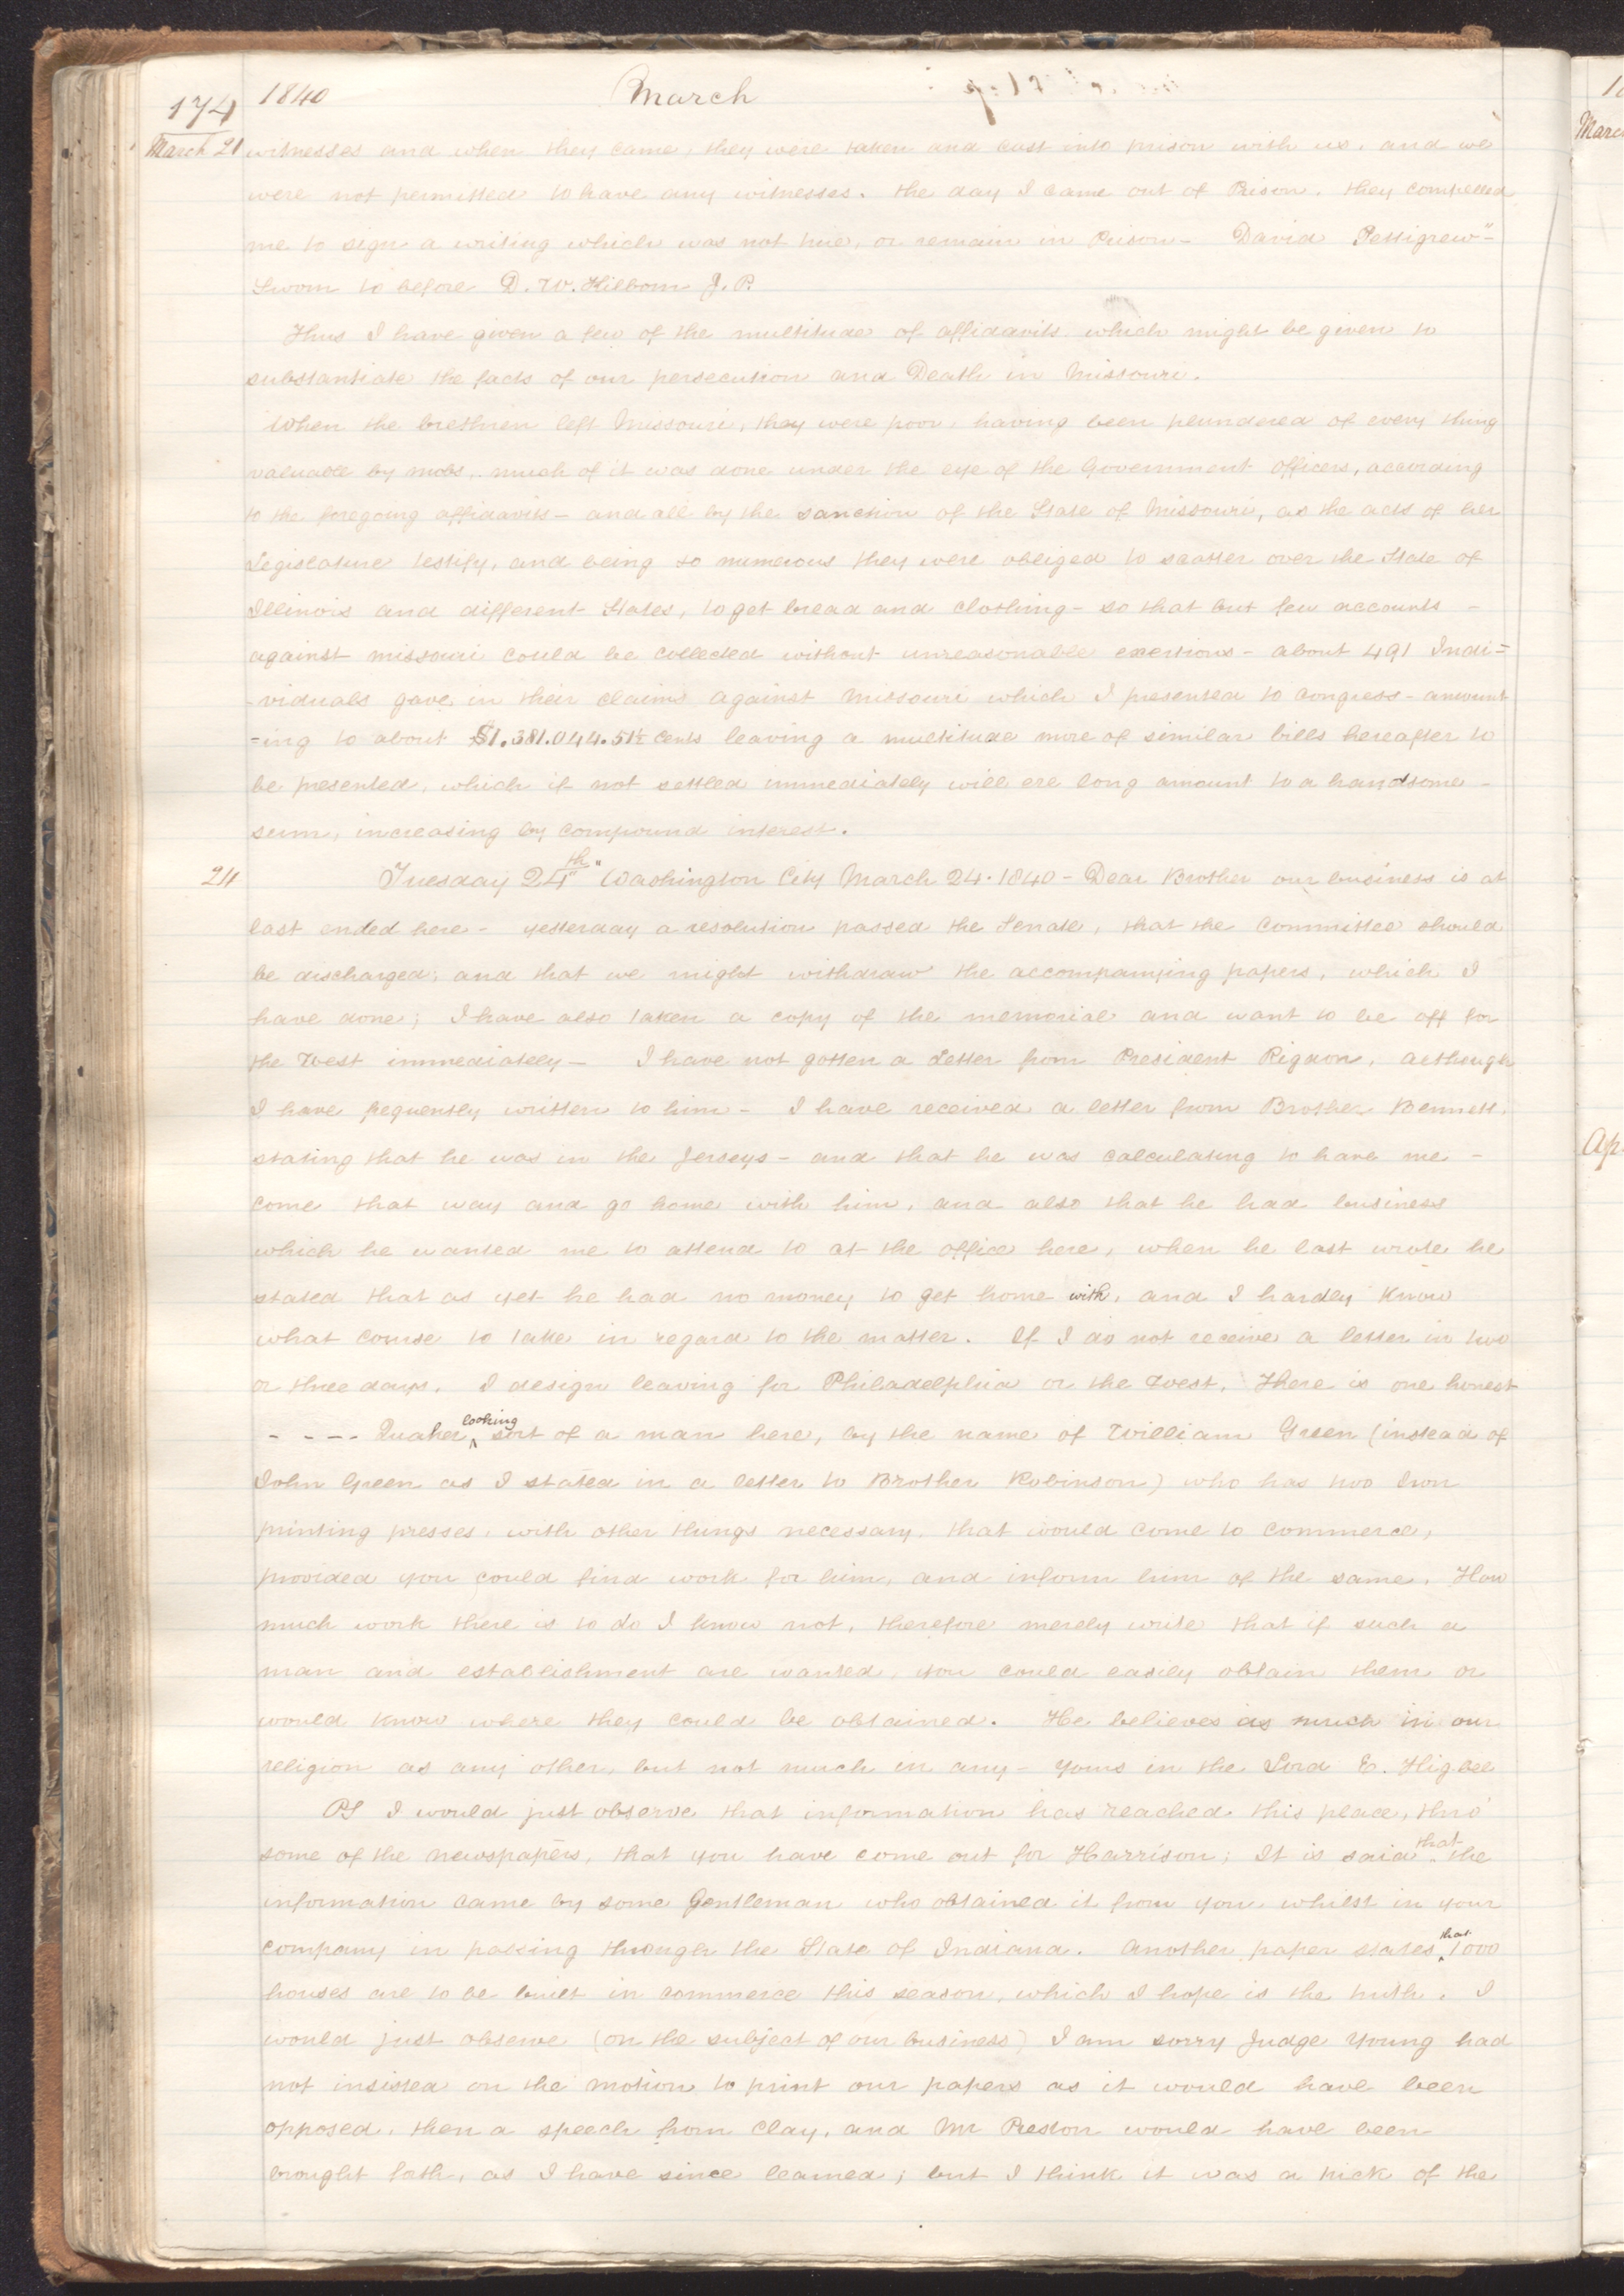 174 1840 March
March 21 witnesses and when they came, they were taken and cast into prison with us, and we
were not permitted to have any witnesses. the day I came out of Prison, they compelled
me to sign a writing which was not true, or remain in Prison - David Pettigrew" -
Sworn to before D. W. Kilborn J. P.
Thus I have given a few of the multitude of affidavits which might be given to
substantiate the facts of our persecution and Death in Missouri.
When the brethren left Missouri, they were poor, having been plundered of every thing
valuable by mobs, much of it was done under the eye of the Government officers, according
to the foregoing affidavits - and all by the sanction of the State of Missouri, as the acts of her
Legislature testify, and being so numerous they were obliged to scatter over the State of
Illinois and different States, to get bread and clothing - so that but few accounts -
against missouri could be collected without unreasonable exertions - about 491 Indi=
-viduals gave in their claims against Missouri which I presented to congress - amount
=ing to about $1.381.044.51½ cents leaving a multitude more of similar bills hereafter to
be presented, which if not settled immediately will ere long amount to a handsome -
sum, increasing by compound interest.
24 Tuesday 24th "Washington City March 24. 1840 - Dear Brother our business is at
last ended here - yesterday a resolution passed the Senate, that the committee should
be discharged; and that we might withdraw the accompanying papers, which I
have done; I have also taken a copy of the memorial and want to be off for
the West immediately - I have not gotten a Letter from President Rigdon, although
I have frequently written to him - I have received a letter from Brother Bennett,
stating that he was in the Jerseys - and that he was calculating to have me -
come that way and go home with him, and also that he had business
which he wanted me to attend to at the office here, when he last wrote he
stated that as yet he had no money to get home with, and I hardly know
what course to take in regard to the matter. If I do not receive a letter in two
or three days, I design leaving for Philadelphia or the West, There is one honest
- - - - Quaker looking sort of a man here, by the name of William Green (instead of
John Green as I stated in a letter to Brother Robinson) who has two Iron
printing presses, with other things necessary, that would come to commerce,
provided you could find work for him, and inform him of the same, How
much work there is to do I know not, therefore merely write that if such a
man and establishment are wanted, you could easily obtain them or
would know where they could be obtained. He believes as much in our
religion as any other, but not much in any - yours in the Lord E. Higbee
PS I would just observe that information has reached this place, thro'
some of the newspapers, that you have come out for Harrison; It is said that the
information came by some Gentleman who obtained it from you whilst in your
company in passing through the State of Indiana. another paper states that 1000
houses are to be built in commerce this season, which I hope is the truth. I
would just observe (on the subject of our business) I am sorry Judge Young had
not insisted on the motion to print our papers as it would have been
opposed, then a speech from Clay, and Mr Preston would have been
brought forth, as I have since learned; but I think it was a trick of the